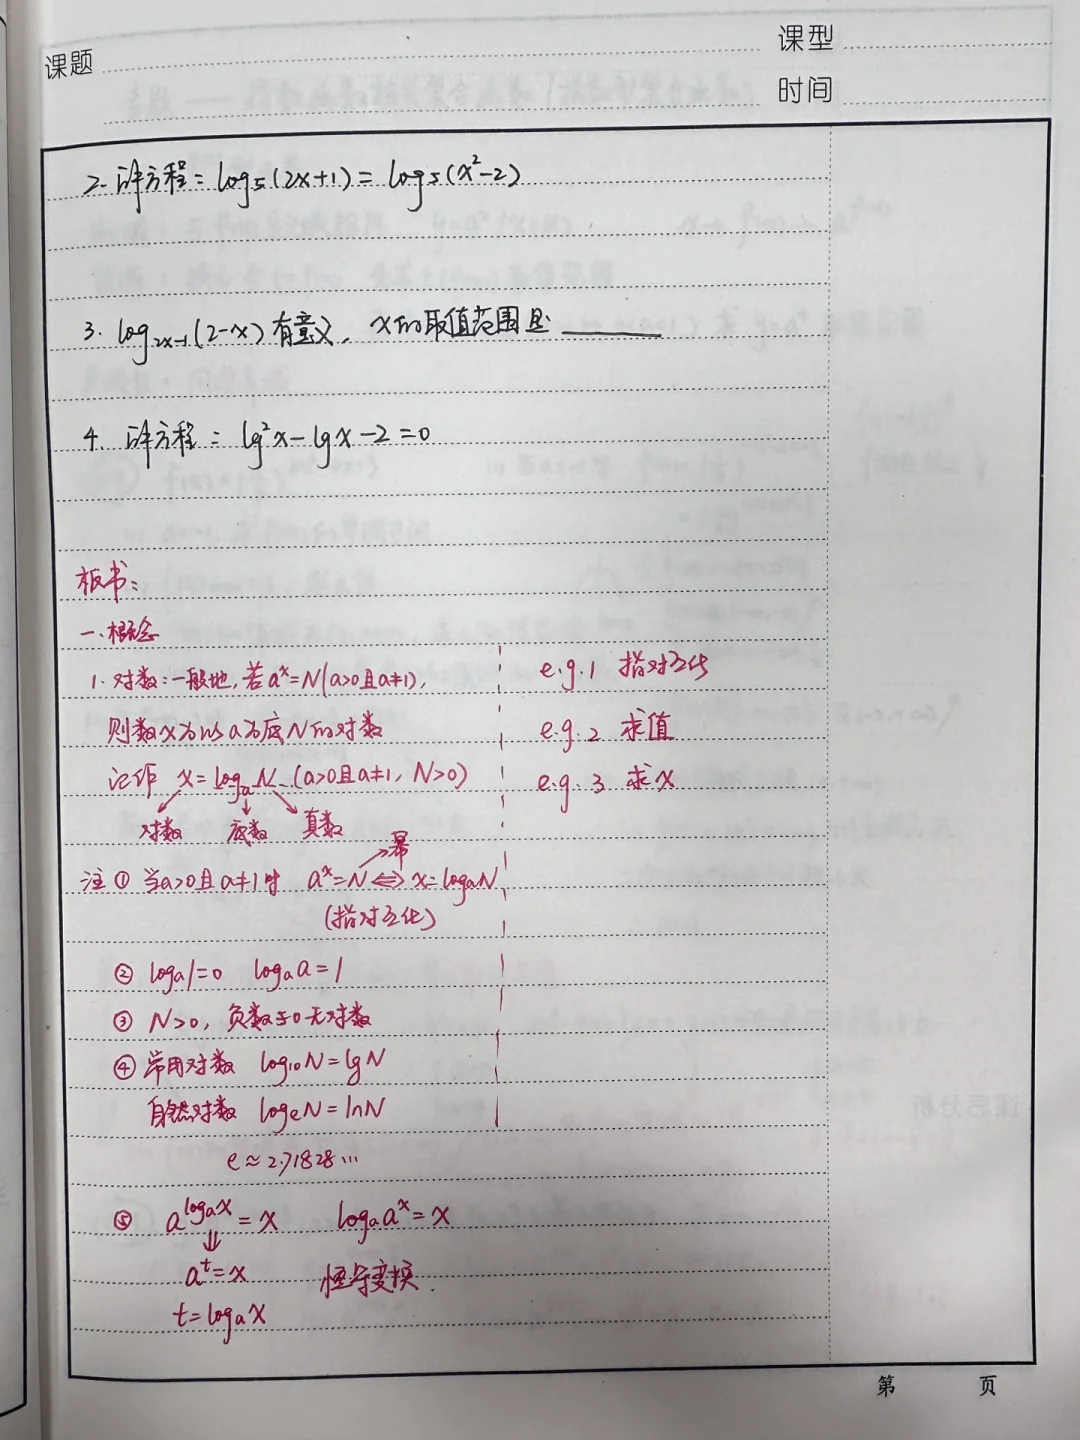 课题
课型
时间
2. 解方程: log₅(2x+1) = log₅(x²-2)
3. log₂ₓ₋₁(2-x)有意义, x的取值范围是 ______
4. 解方程: lg²x-lgx-2=0
板书:
一、概念
1. 对数:一般地,若aˣ=N(a>0且a≠1),
则数x为以a为底N的对数
记作 x=logₐN (a>0且a≠1, N>0)
对数 底数 真数
幂
注① 当a>0且a≠1时 aˣ=N⇔x=logₐN
(指对互化)
② logₐ1=0 logₐa=1
③ N>0, 负数与0无对数
④ 常用对数 log₁₀N=lgN
自然对数 logₑN=lnN
e≈2.71828…
⑤ a^(logₐx)=x logₐaˣ=x
⇓
aᵗ=x 恒等变换.
t=logₐx
e.g.1 指对互化
e.g.2 求值
e.g.3 求x
第 页